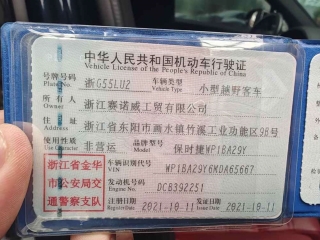 中华人民共和国机动车行驶证
Vehicle License of the People's Republic of China
号牌号码 浙G55LU2 车辆类型 小型越野客车
Plate No. Vehicle Type
所有人 浙江赛诺威工贸有限公司
Owner
住址 浙江省东阳市画水镇竹溪工业功能区98号
Address
使用性质 非营运 品牌型号 保时捷WP1BA29Y
浙江省金华
市公安局交
通警察支队
车辆识别代号 WP1BA29Y6KDA65667
VIN
发动机号码 DCB392251
Engine No.
注册日期 2021-10-11 发证日期 2021-10-11
Register Date Issue Date